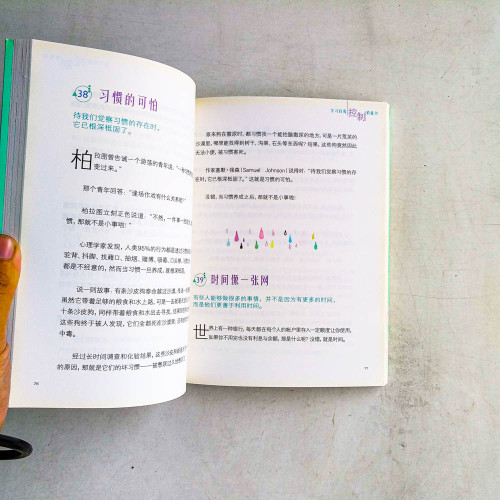 38 习惯的可怕
待我们觉察习惯的存在时，
它已根深柢固了。
柏拉图曾告诫一个游荡的青年说
变过来。”
那个青年回答：
柏拉图立刻正色说道：“不然，一件事一
惯，那就不是小事啦！”
心理学家发现，人类95%的行为都是透过
驼背、抖脚、找藉口、抽烟、赌博
都是不经意的，然而当习惯一旦养成，
说一则故事，有条沙皮狗
虽然它带着足够的粮食和水上路，可是一
十条沙皮狗，同样带着粮食和水
这些狗终于被人发现，它们全都死在沙漠里
中毒。
经过长时间调查和化验结果，这些沙皮狗
的原因，那就是它们的坏习惯——被
76
学习自我控制的智力
原来狗在撒尿时，都习惯找一个能抬腿撒尿的地方，可是一片荒漠的
沙漠里，哪里能找得到树干、沟渠、石头等东西呢？结果，这些狗竟然因此
无法小便，被习惯害死。
作家塞默·强森（Samuel Johnson）说得好：“待我们觉察习惯的存
在时，它已根深柢固了。”这就是习惯的可怕。
没错，当习惯养成之后，那就不是小事啦！
39 时间像一张网
有些人能够做很多的事情，并不是因为有更多的时间，
而是他们更善于利用时间。
世界上有一种银行，每天都在每个人的帐户里存入一定额度让你使用，
如果你不用完也没有利息与余额，那是什么呢？没错，就是时间。
77